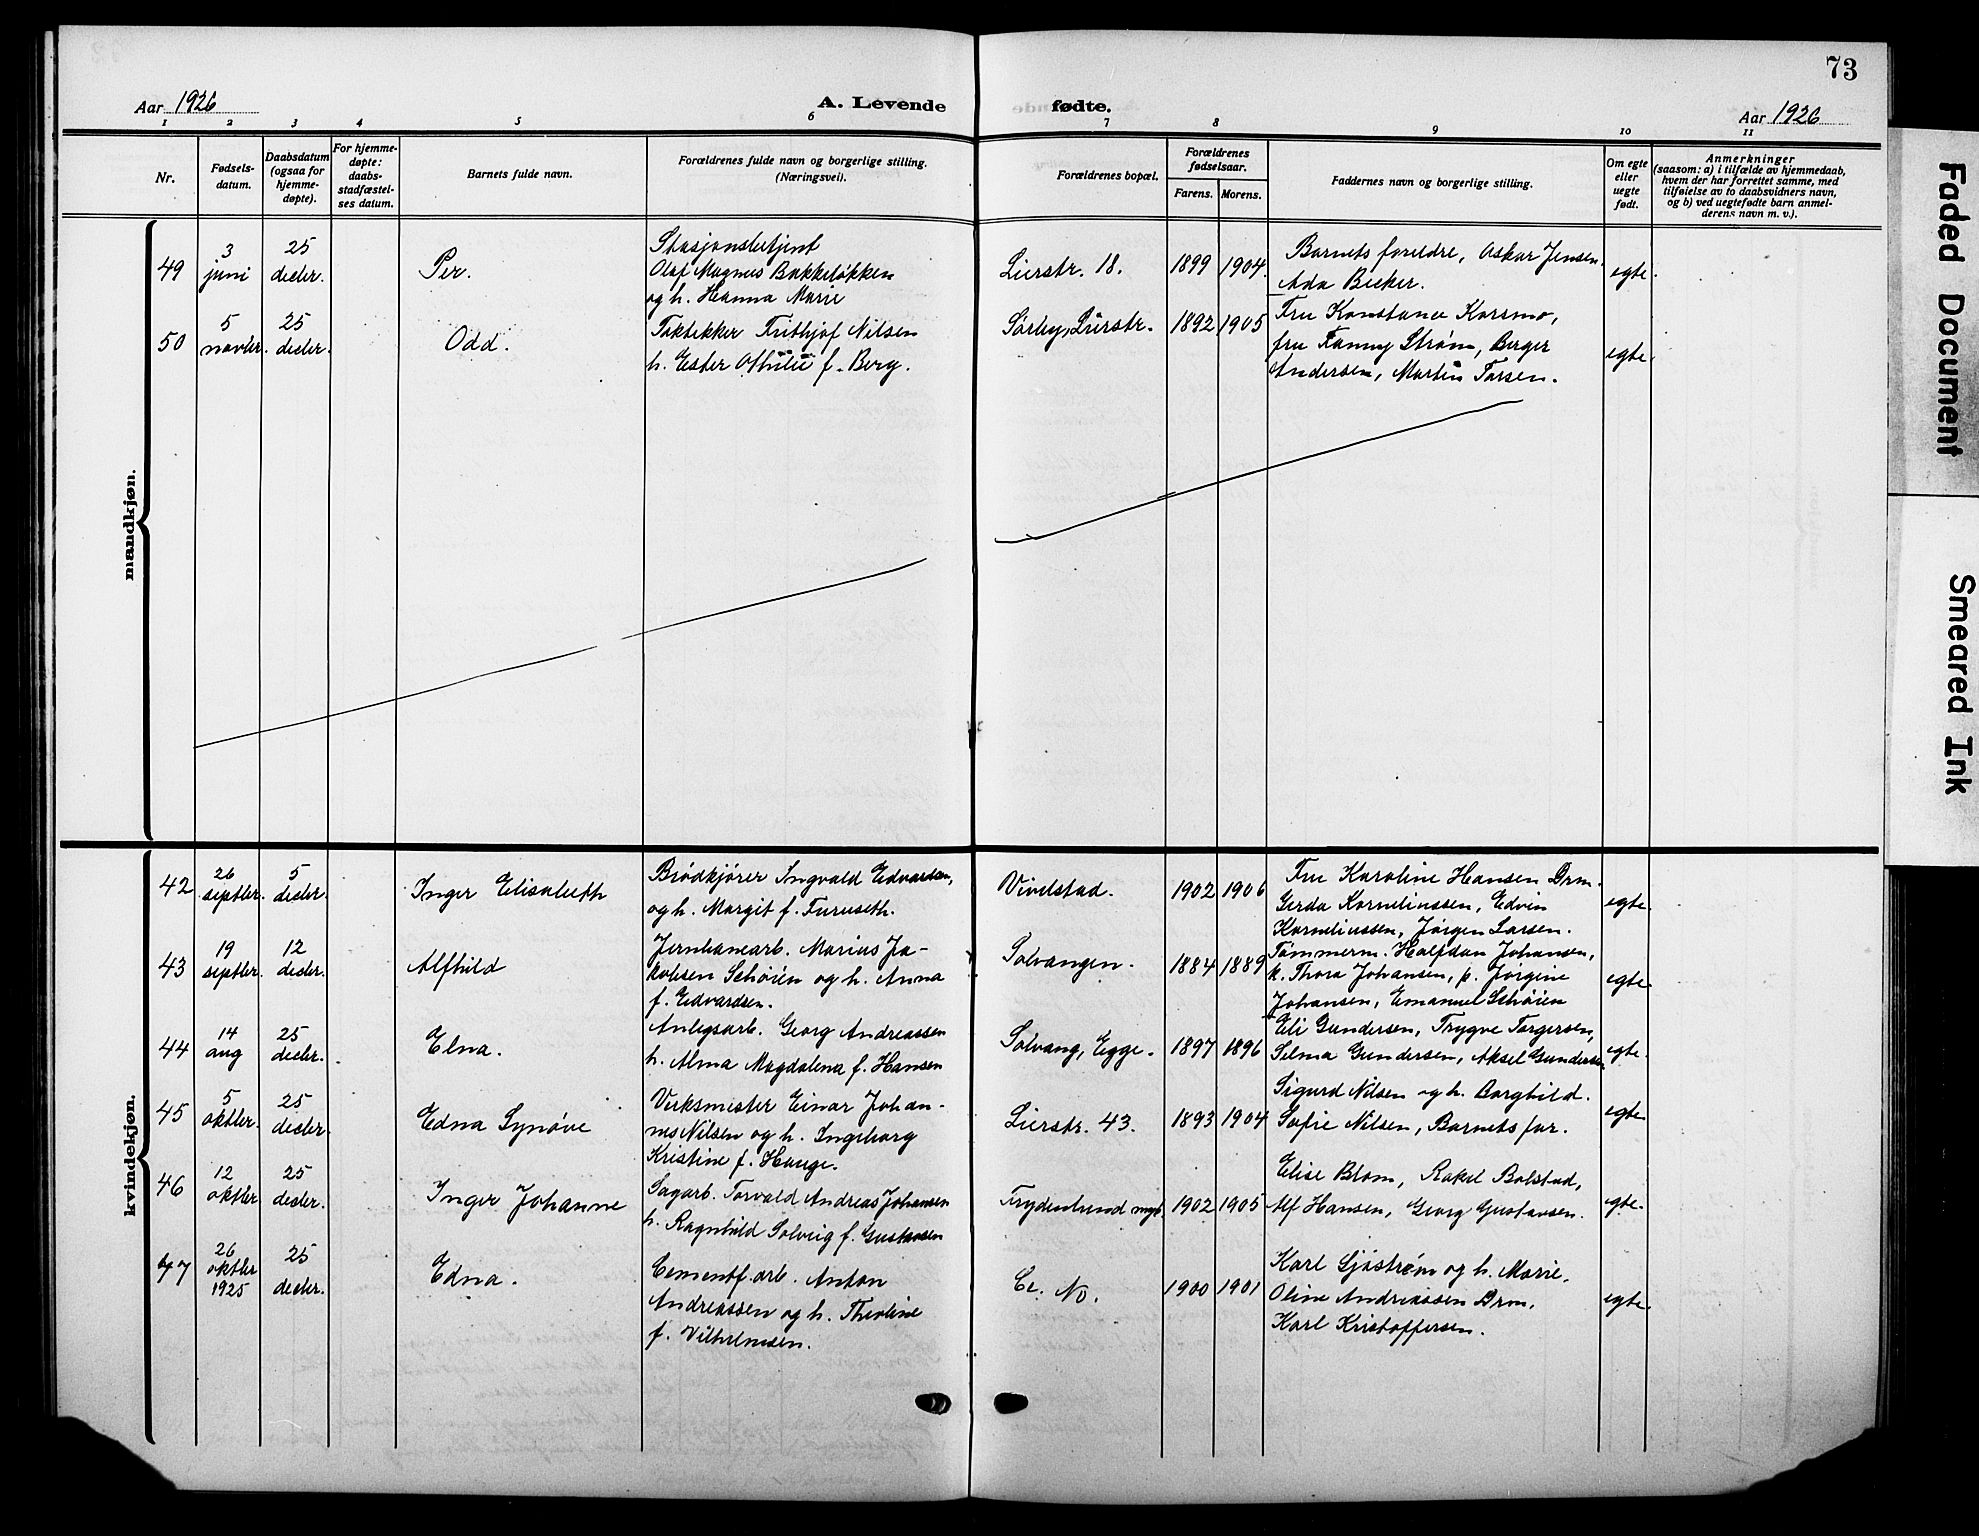 73
Aar 1926
A. Levende fødte.
Aar 1926
1 2 3 4 5 6 7 8 9 10 11
Nr.
Fødsels-
datum.
Daabsdatum
(ogsaa for
hjemme-
døpte).
For hjemme-
døpte:
daabs-
stadfæstel-
ses datum.
Barnets fulde navn.
Forældrenes fulde navn og borgerlige stilling.
(Næringsvei).
Forældrenes bopæl.
Forældrenes
fødselsaar.
Farens. Morens.
Faddernes navn og borgerlige stilling.
Om egte
eller
uegte
født.
Anmerkninger
(saasom: a) i tilfælde av hjemmedaab,
hvem der har forrettet samme, med
tilføielse av to daabsvidners navn,
og b) ved uegtefødte barn anmel-
derens navn m. v.).
mandkjøn.
49
3
juni
25
decbr.
Per.
Stasjonsbetjent
Olaf Magnus Bakkeløkken
og h. Hanna Marie
Lierstr. 18.
1899 1904.
Barnets foreldre, Oskar Jensen,
Ada Becker.
egte.
50
5
novbr.
25
decbr.
Odd.
Taktekker Frithjof Nilsen
h. Ester Othilie f. Berg.
Sørby, Lierstr.
1892 1905
Fru Konstance Korsmo,
fru Fanny Strøm, Berger
Andersen, Martin Torsen.
egte.
kvindekjøn.
42
26
septbr.
5
decbr.
Inger Elisabeth
Brødkjører Ingvald Edvardsen,
og h. Margit f. Furuseth.
Vivelstad.
1902 1906
Fru Karoline Hansen Drm.
Gerda Korneliussen, Edvin
Korneliussen, Jørgen Larsen.
egte.
43
19
septbr.
12
decbr.
Alfhild
Jernbanearb. Marius Ja-
kobsen Schøien og h. Anna
f. Edvardsen.
Solvangen.
1884 1889
Tømmerm. Halfdan Johansen,
k. Thora Johansen, p. Jørgine
Johansen, Emanuel Schøien
egte.
44
14
aug
25
decbr.
Elna.
Anlegsarb. Georg Andreassen
h. Alma Magdalena f. Hansen
Solvang, Egge.
1897 1896
Eli Gundersen, Trygve Torgersen,
Selma Gundersen, Aksel Gundersen
egte.
45
5
oktbr.
25
decbr.
Edna Synøve
Verksmester Einar Johan-
nes Nilsen og h. Ingeborg
Kristine f. Hauge.
Lierstr. 43.
1893 1904
Sigurd Nilsen og h. Borghild.
Sofie Nilsen, Barnets far.
egte
46
12
oktbr
25
decbr.
Inger Johanne
Sagarb. Torvald Andreas Johansen
h. Ragnhild Solveig f. Gustavsen
Frydenlund
1902 1905
Elise Blom, Rakel Bolstad,
Alf Hansen, Georg Gustavsen.
egte.
47
26
oktbr
1925
25
decbr.
Edna.
Cementf. arb. Anton
Andreassen og h. Theoline
f. Vilhelmsen.
Ce. No.
1900 1901
Karl Sjøstrøm og h. Marie.
Oline Andreassen Drm.
Karl Kristoffersen.
egte.
Faded Document
Smeared Ink